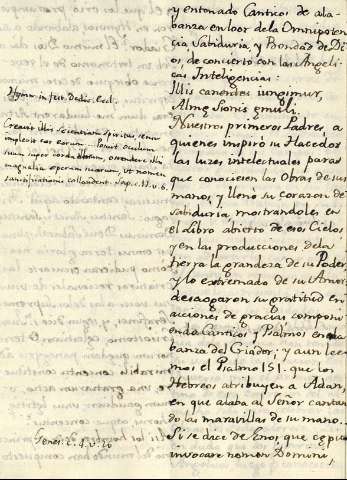 y entonado Canticos de ala
banza en loor de la Omnipoten
cia, Sabiduria, y Bondad de Di
os, de concierto con las Angeli
cas Inteligencias:
Illis canentes iungimur,
Almę Sionis ęmuli.
Nuestros primeros Padres, a
quienes inspiró su Hacedor
las luzes intelectuales para
que conociesen las Obras de sus
manos, y llenó su corazon de
Sabiduria, mostrandoles en
el Libro abierto de esos Cielos
y en las producciones de la
tierra la grandeza de su Poder,
y lo extremado de su Amor,
desaogaron su gratitud en
acciones de gracias componi
endo Canticos y Psalmos en ala
banza del Criador; y aun lee
mos el Psalmo 151. que los
Hebreos atribuyen a Adan,
en que alaba al Señor cantan
do las maravillas de su mano.
Si se dice de Enos, que cępit
invocare nomen Domini,
Hymn. in fest. Dedic. Eccl.
Creavit illis scientiam spiritus, sensu
implevit cor eorum. Posuit oculum
suum super corda illorum, ostendere illis
magnalia operum suorum, ut nomen
sanctificationis collaudent. c. 17. v. 6.
Genes. c. 4. v. 26